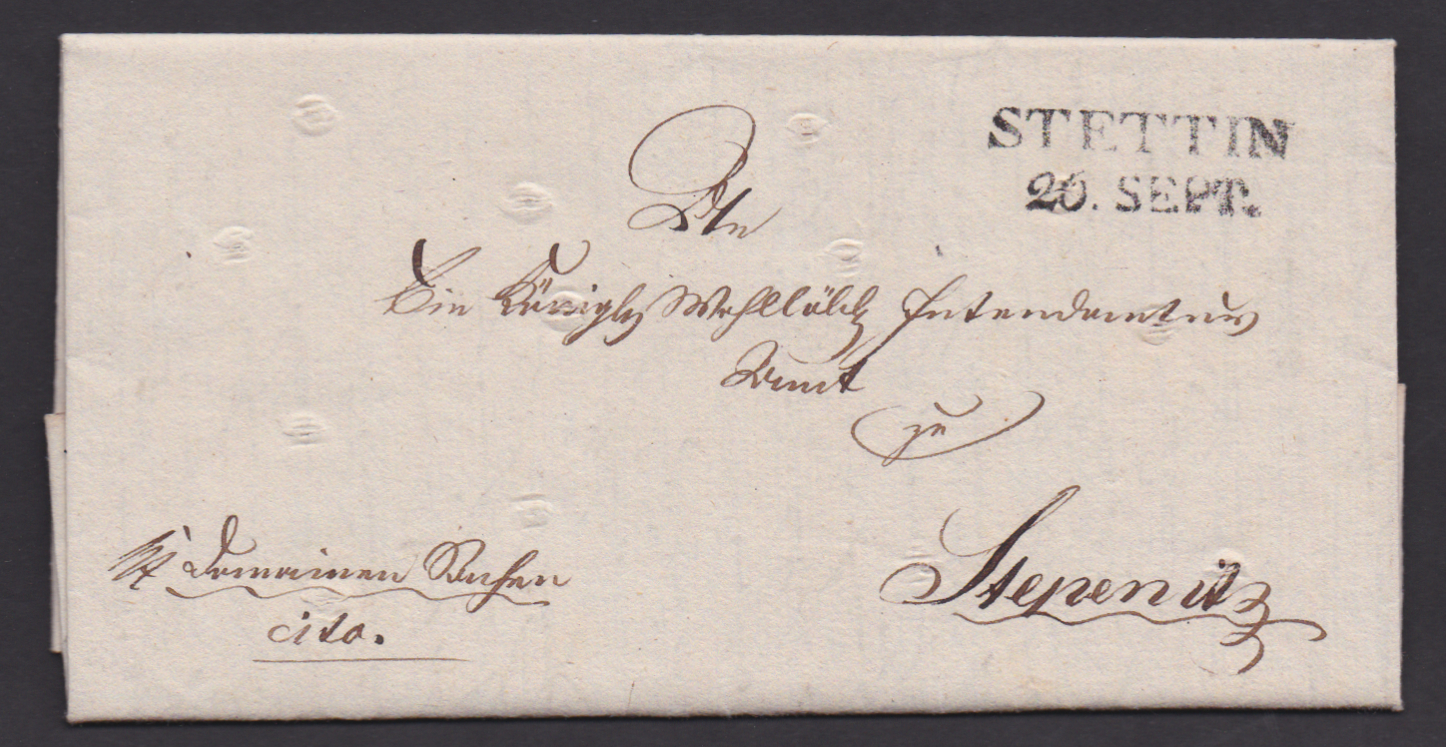 STETTIN
26. SEPT.
An
Ein Königl Wohllöbl Intendantur
Amt
zu
Stepenitz
Domainen Sachen
cito.